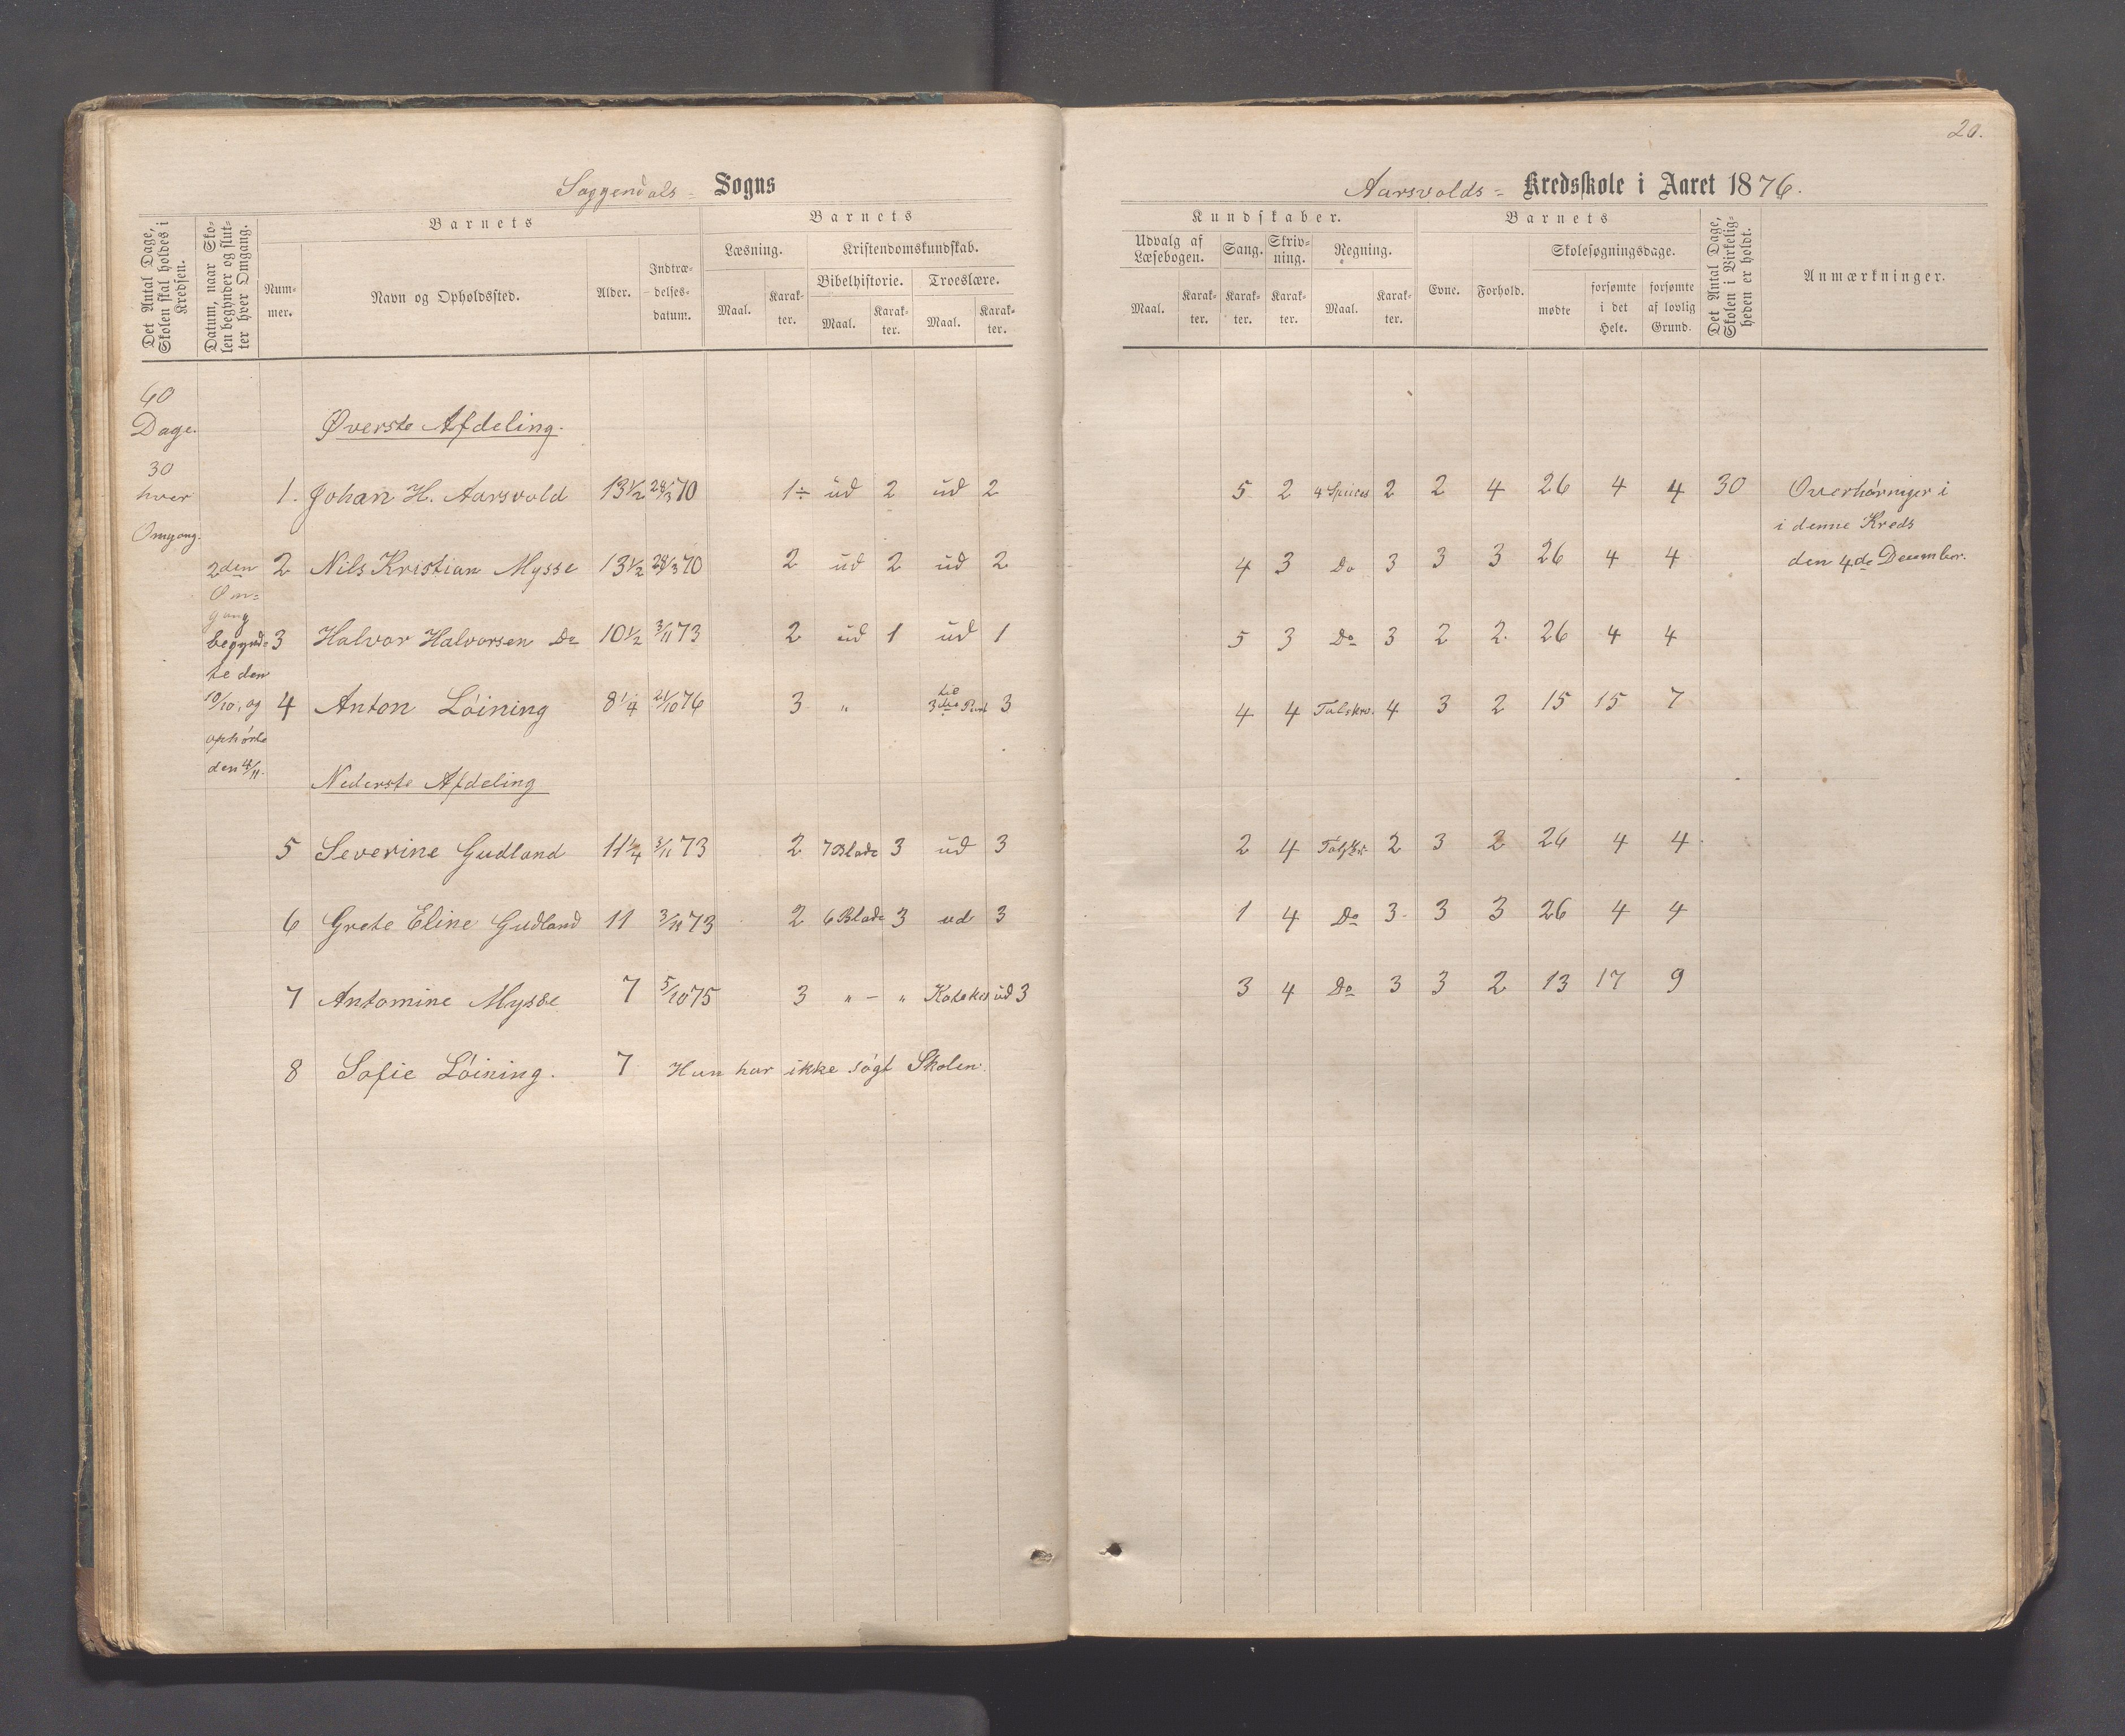 20.
Soggendals- Sogns
Aarsvolds- Kredsskole i Aaret 1876.
Det Antal Dage, Skolen skal holdes i Kredsen.
Datum, naar Skolen begynder og slutter hver Omgang.
Barnets
Nummer.
Navn og Opholdssted.
Alder.
Indtrædelsesdatum.
Barnets
Læsning.
Maal.
Karakter.
Kristendomskundskab.
Bibelhistorie.
Maal.
Karakter.
Troeslære.
Maal.
Karakter.
Kundskaber.
Udvalg af Læsebogen.
Maal.
Karakter.
Sang.
Karakter.
Skrivning.
Karakter.
Regning.
Maal.
Karakter.
Barnets
Evne.
Forhold.
Skolesøgningsdage.
mødte
forsømte i det Hele.
forsømte af lovlig Grund.
Det Antal Dage, Skolen i Virkeligheden er holdt.
Anmærkninger.
60
Dage.
30
hver
Omgang.
2den
Om=
gang
begynd=
te den
10/10, og
ophørte
den 4/11.
Øverste Afdeling.
1. Johan H. Aarsvold 13 1/2 28/3 70 1÷ ud 2 ud 2 5 2 4 Species 2 2 4 26 4 4 30 Overhørniger i
i denne Kreds
2 Nils Kristian Mysse 13 1/2 28/3 70 2 ud 2 ud 2 4 3 Do 3 3 3 26 4 4 den 4de December.
3 Halvor Halvorsen Do 10 1/2 3/11 73 2 ud 1 ud 1 5 3 Do 3 2 2. 26 4 4
4 Anton Löining 8 1/4 21/10 76 3 „ 3 4 4 Talskrv. 4 3 2 15 15 7
Nederste Afdeling
5 Severine Gudland 11 1/4 3/11 73 2 7 Blade 3 ud 3 2 4 Talskr. 2 3 2 26 4 4
6 Grete Eline Gudland 11 3/11 73 2 6 Blade 3 ud 3 1 4 Do 3. 3 3 26 4 4
7 Antomine Mysse 7 5/10 75 3 „ – „ Katekis ud 3 3 4 Do 3 3 2 13 17 9
8 Sofie Löining. 7 Hun har ikke søgt Skolen.